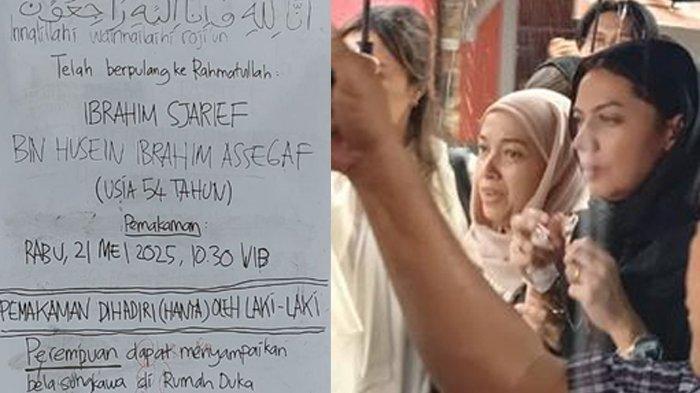 إنّا للهِ وَإنّا إليهِ رَاجِعُوْنَ
Innalilahi wainnailaihi roji'un
Telah berpulang ke Rahmatullah :
IBRAHIM SJARIEF
BIN HUSEIN IBRAHIM ASSEGAF
(USIA 54 TAHUN)
Pemakaman :
RABU, 21 MEI 2025, 10.30 WIB
PEMAKAMAN DIHADIRI (HANYA) OLEH LAKI-LAKI
Perempuan dapat menyampaikan
bela sungkawa di Rumah Duka